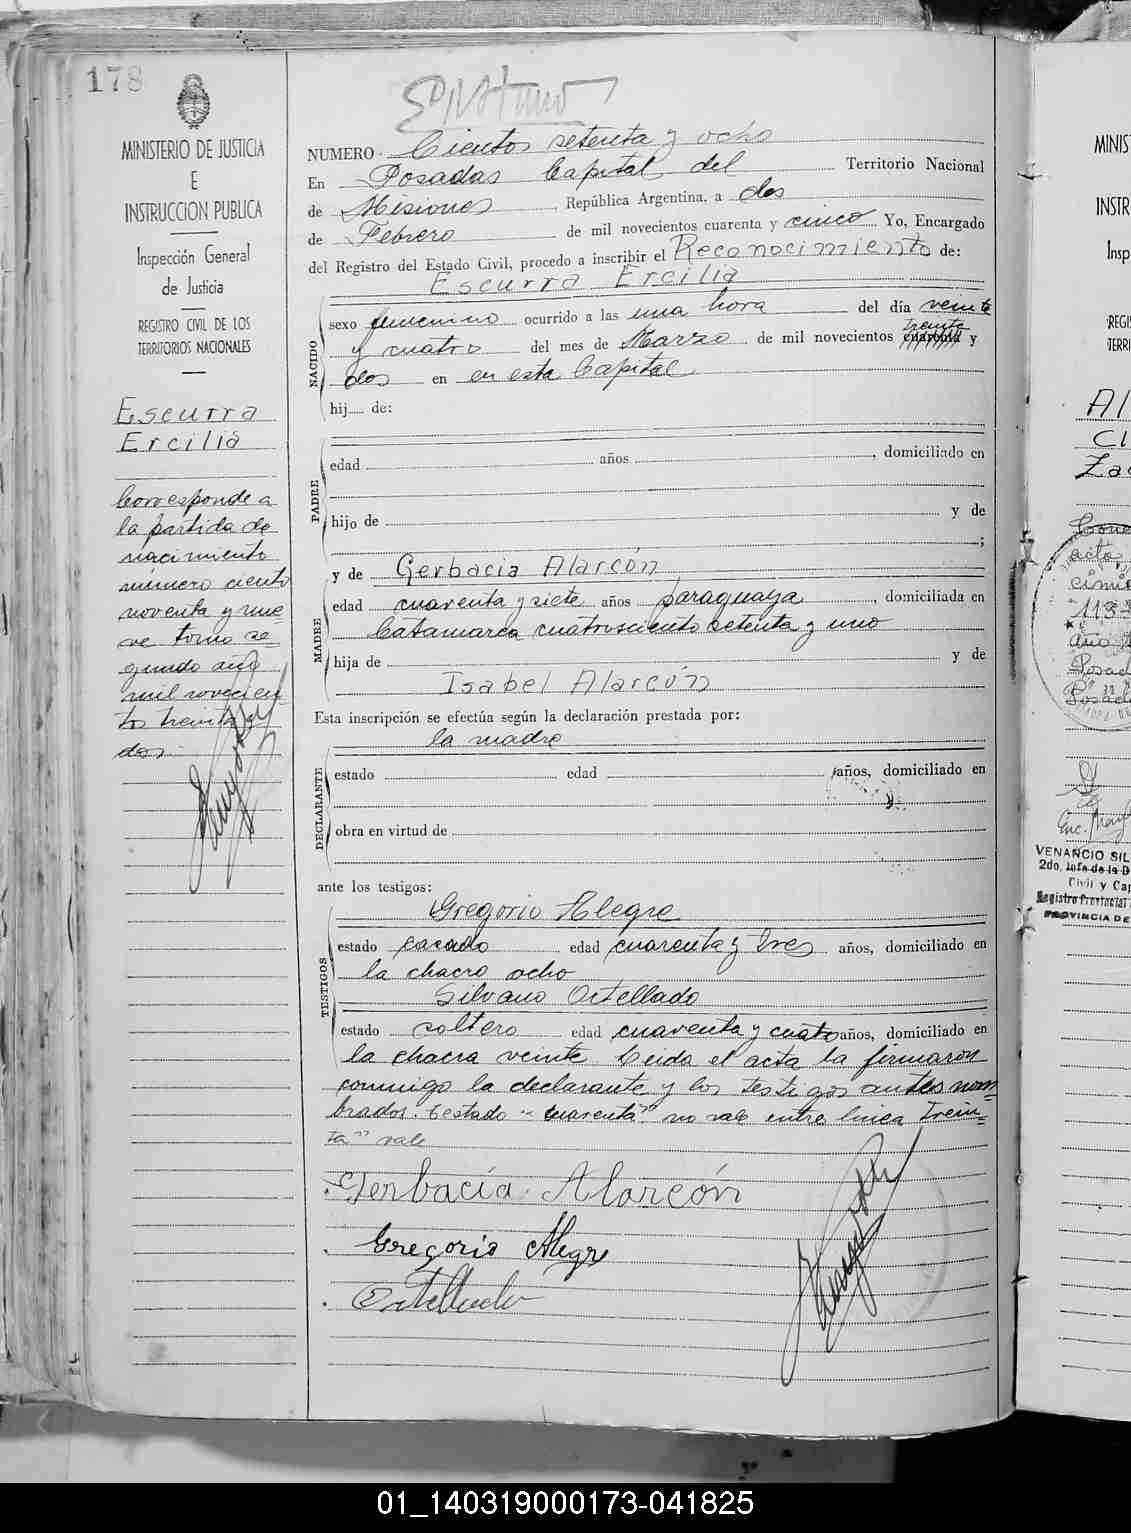 178
MINISTERIO DE JUSTICIA
E
INSTRUCCION PUBLICA
Inspección General
de Justicia
REGISTRO CIVIL DE LOS
TERRITORIOS NACIONALES
Escurra
Ercilia
Corresponde a
la partida de
nacimiento
numero ciento
noventa y nue
ve tomo se
gundo año
mil novecien
tos treinta y
dos
NUMERO Cientos setenta y ocho
En Posadas Capital del Territorio Nacional
de Misiones, República Argentina, a dos
de Febrero de mil novecientos cuarenta y cinco Yo, Encargado
del Registro del Estado Civil, procedo a inscribir el Reconocimiento de:
Escurra Ercilia
NACIDO
sexo femenino ocurrido a las una hora del día veinte
treinta
y cuatro del mes de Marzo de mil novecientos cuarenta y
dos en en esta Capital
hij de:
PADRE
edad años , domiciliado en
hijo de y de
;
MADRE
y de Gerbacia Alarcón
edad cuarenta y siete años paraguaya, domiciliada en
Catamarca cuatrosciento setenta y uno
hija de y de
Isabel Alarcón
Esta inscripción se efectúa según la declaración prestada por:
la madre
DECLARANTE
estado edad años, domiciliado en
obra en virtud de
ante los testigos:
TESTIGOS
Gregorio Alegre
estado casado edad cuarenta y tres años, domiciliado en
la chacra ocho
Silvano Ortellado
estado soltero edad cuarenta y cuatro años, domiciliado en
la chacra veinte Leida el acta la firmaron
conmigo la declarante y los testigos antes nom=
brados. testado "cuarenta" no vale entre linea trein=
ta" vale
Gerbacia Alarcón
Gregorio Alegre
Ortellado
MINIS
INSTR
Insp
REGIS
TERRI
Al
Cl
Za
acta,
1133
año
Posad
Posad
VENANCIO SIL
2do. Jefe de la D
Civil y Cap
Registro Provincial
PROVINCIA DE
01_140319000173-041825